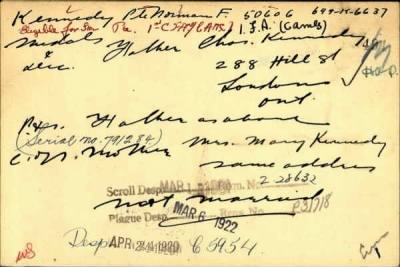 Kennedy Pte Norman F. 50606 649-K-6637
Eligible for Star Pa. 1st C.S. 1.F.A. (Cards)
medals Father Chas. Kennedy
& dec. 288 Hill St
London
Ont.
P. & S. Father as above
(Serial no. 791234)
C. of S. mother Mrs. Mary Kennedy
same address
Scroll Desp. MAR No. Z 28632
not married
Plaque Desp. MAR 6 1922 Regn. No. P31718
Desp APR 24 1920 C 5954